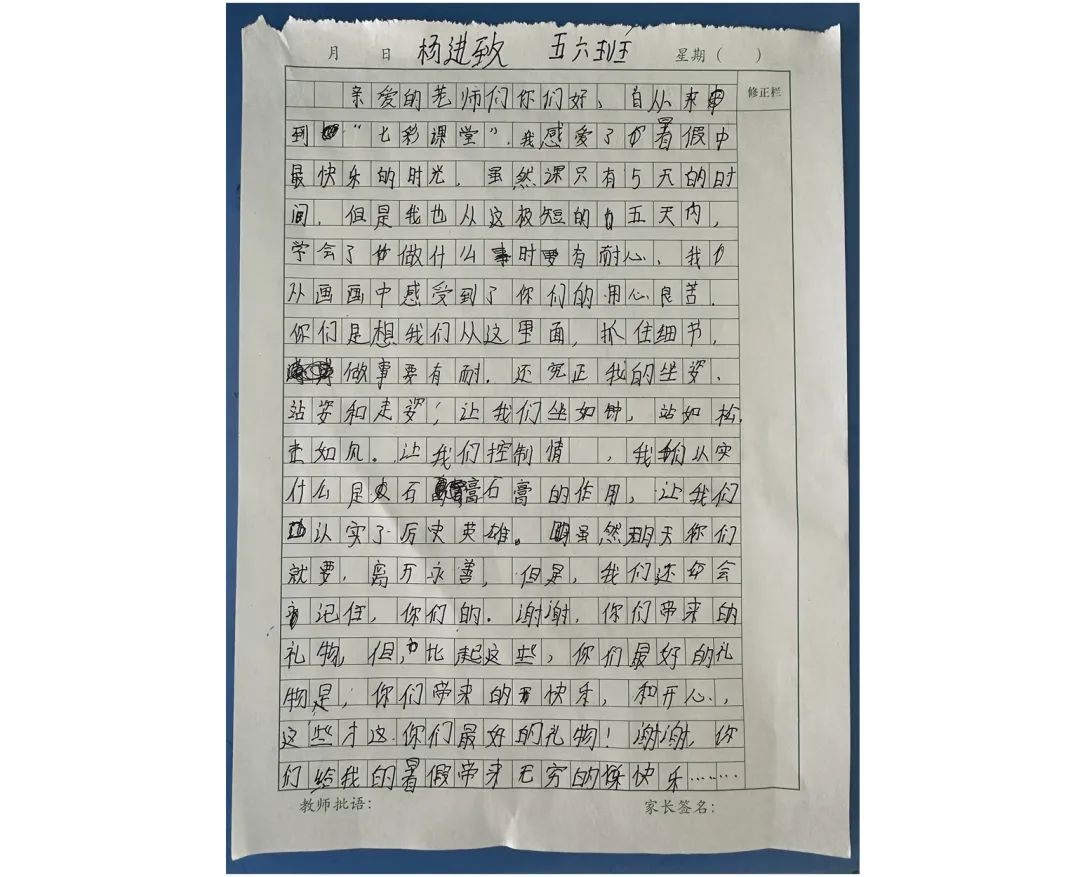 月 日 杨进致 五六班 星期( )
修正栏
亲爱的老师们你们好、自从来
到“七彩课堂”.我感爱了暑假中
最快乐的时光.虽然课只有5天的时
间.但是我也从这极短的五天内,
学会了做什么事时要有耐心、我
从画画中感受到了你们的用心良苦.
你们是想我们从这里面,抓住细节,
做事要有耐.还完正我的坐姿、
站姿和走姿;让我们坐如钟,站如松.
走如风。让我们控制情 ,我们认实
什么是石膏石膏的作用,让我们
认实了历史英雄。虽然明天你们
就要,离开永善,但是,我们还会
记住,你们的.谢谢,你们带来的
礼物,但,比起这些,你们最好的礼
物是,你们带来的快乐,和开心.,
这些才这你们最好的礼物!谢谢,你
们给我的暑假带来无穷的快乐……
教师批语: 家长签名: